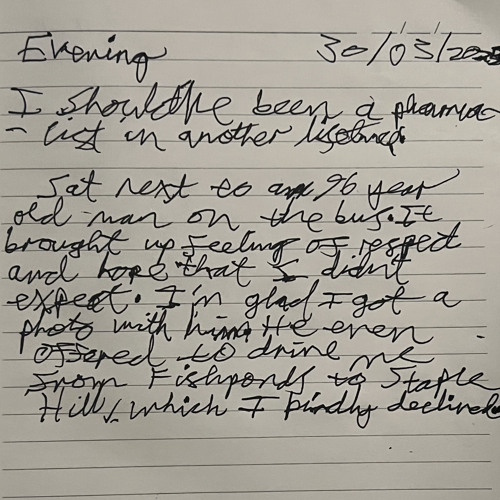 Evening 30/03/2025
I should've been a pharma
-cist in another lifetime.
Sat next to a 96 year
old man on the bus. It
brought up feeling of respect
and hope that I didn't
expect. I'm glad I got a
photo with him. He even
offered to drive me
from Fishponds to Staple
Hill, which I kindly declined